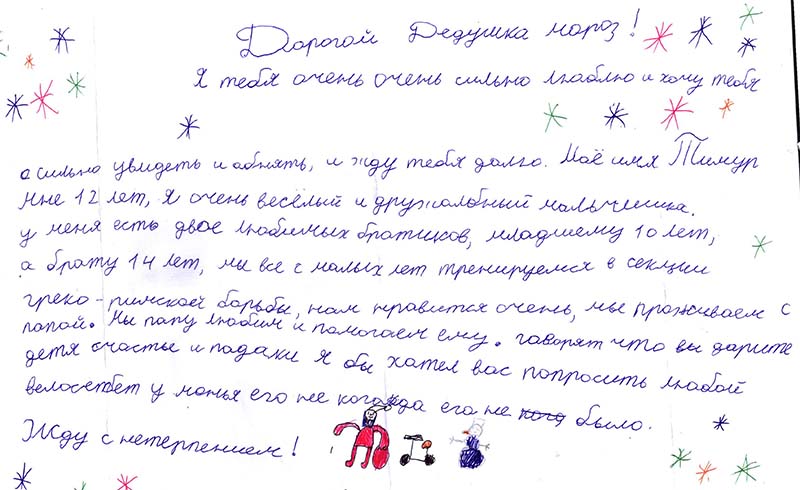 Дорогой Дедушка мороз!
Я тебя очень очень сильно люблю и хочу тебя
а сильно увидеть и абнять, и жду тебя долго. Моё имя Тимур
мне 12 лет, я очень весёлый и дружолюбный мальчишка.
у меня есть двое любимых братиков, младшему 10 лет,
а брату 14 лет, мы все с малых лет тренируемся в секции
греко-римской борьбы, нам нравится очень, мы проживаем с
папой. Мы папу любим и помогаем ему. говорят что вы дарите
детя счастье и падаки Я бы хател вас попросить любой
велосетбет у манья его не когда его не было.
Жду с нетерпением!